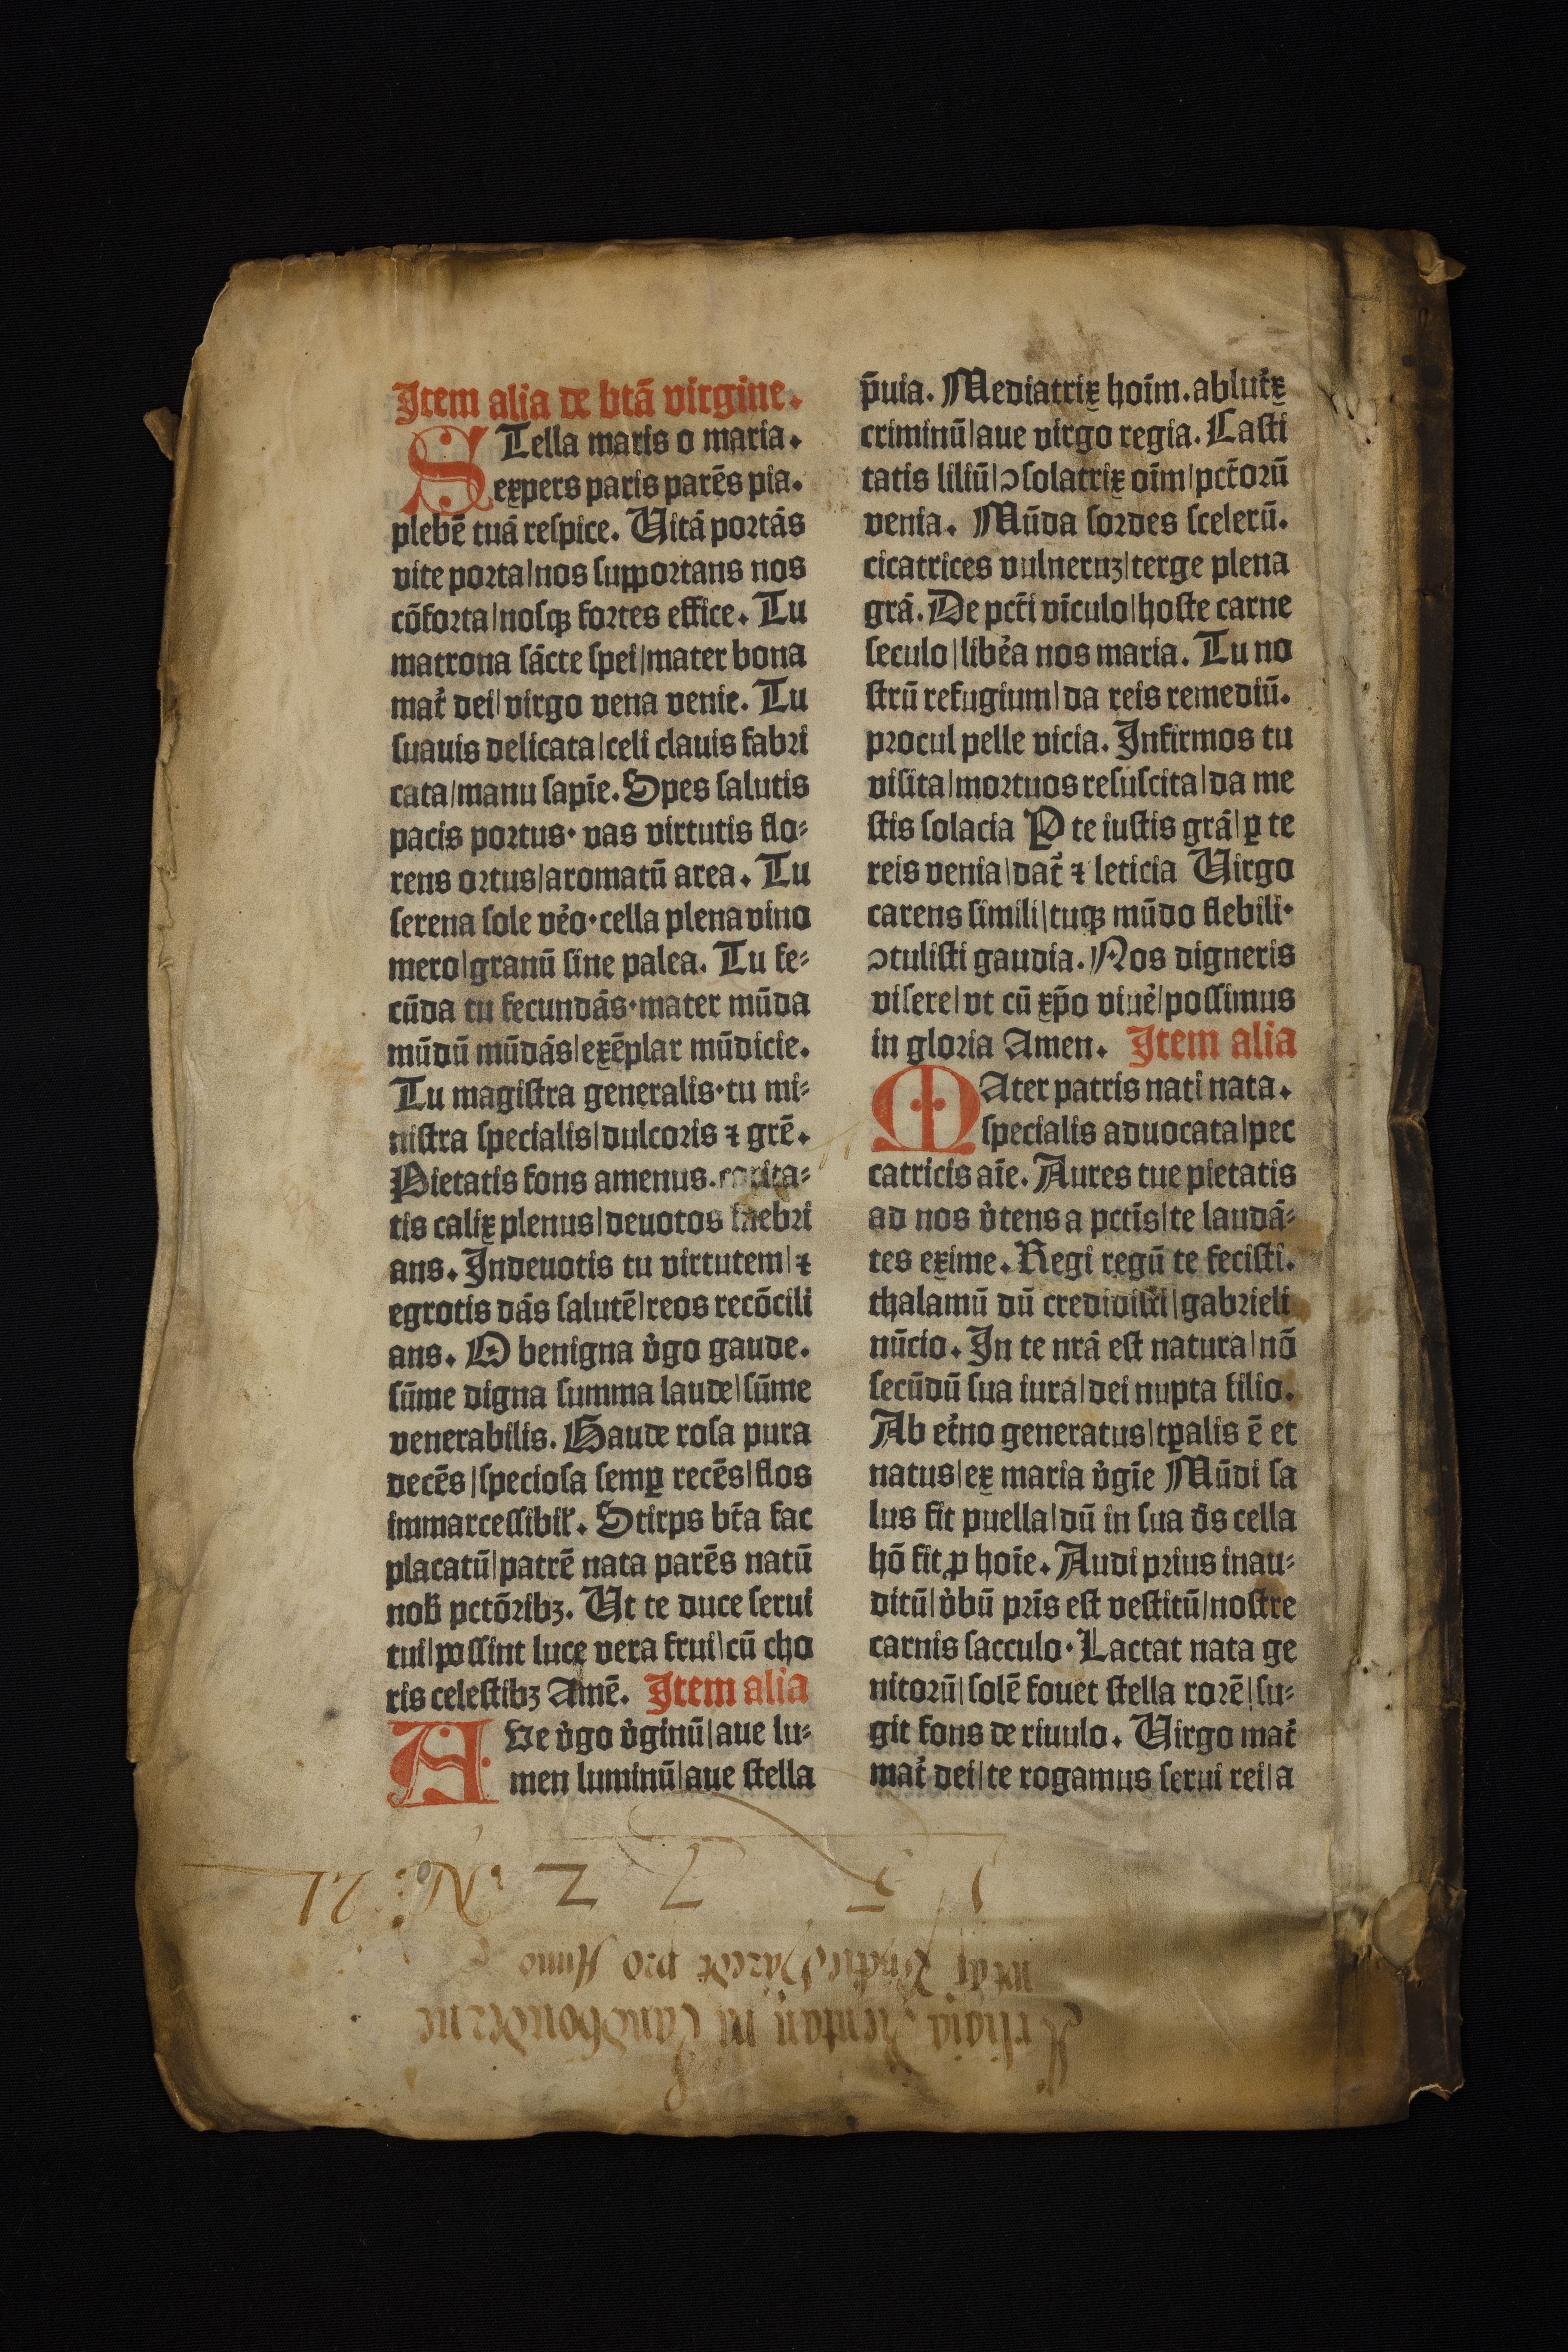 Item alia de btā virgine.
STella maris o maria.
expers paris parēs pia.
plebē tuā respice. Vitā portās
vite porta|nos supportans nos
cōforta|nosqꝫ fortes effice. Tu
matrona sācte spei|mater bona
mat̉ dei|virgo vena venie. Tu
suauis delicata|celi clauis fabri
cata|manu sapīe. Spes salutis
pacis portus· vas virtutis flo⸗
rens ortus|aromatū area. Tu
serena sole vẻo·cella plena vino
mero|granū sine palea. Tu fe⸗
cūda tu fecundās·mater mūda
mūdū mūdās|exēplar mūdicie.
Tu magistra generalis·tu mi⸗
nistra specialis|dulcoris ⁊ grē.
Pietatis fons amenus.carita⸗
tis calix plenus|deuotos inebri
ans. Indeuotis tu virtutem|⁊
egrotis dās salutē|reos recōcili
ans. O benigna v̉go gaude.
sūme digna summa laude|sūme
venerabilis. Gaude rosa pura
decēs|speciosa semꝑ recēs|flos
immarcessibil̉. Stirps bt̄a fac
placatū|patrē nata parēs natū
nob̄ pctōribꝫ. Ut te duce serui
tui|possint luce vera frui|cū cho
ris celestibꝫ Amē. Item alia
AVe v̉go v̉ginū|aue lu⸗
men luminū|aue stella
p̄uia. Mediatrix hoīm.ablut̉x
criminū|aue virgo regia. Casti
tatis liliū|ꝯsolatrix oīm|pct̄orū
venia. Mūda sordes scelerū.
cicatrices vulneruꝫ|terge plena
grā. De pct̄i vīculo|hoste carne
seculo|libẻa nos maria. Tu no
strū refugium|da reis remediū.
procul pelle vicia. Infirmos tu
visita|mortuos resuscita|da me
stis solacia P te iustis grā|ꝑ te
reis venia|dat̉ ⁊ leticia Virgo
carens simili|tuqꝫ mūdo flebili·
ꝯtulisti gaudia. Nos digneris
visere|vt cū xp̄o viuẻ|possimus
in gloria Amen. Item alia
MAter patris nati nata.
specialis aduocata|pec
catricis aīe. Aures tue pietatis
ad nos v̉tens a pctīs|te laudā⸗
tes exime. Regi regū te fecisti.
thalamū dū credidisti|gabrieli
nūcio. In te nrā est natura|nō
secūdū sua iura|dei nupta filio.
Ab et̉no generatus|tꝑalis ē et
natus|ex maria v̉gīe Mūdi sa
lus fit puella|dū in sua dn̄s cella
hō fit ꝓ hoīe. Audi prius inau⸗
ditū|v̉bū pr̄is est vestitū|nostre
carnis sacculo·Lactat nata ge
nitorū|solē fouet stella rorē|su⸗
git fons de riuulo. Virgo mat̉
mat̉ dei|te rogamus serui rei|a
No: 21
1 5 7 2
pro Anno